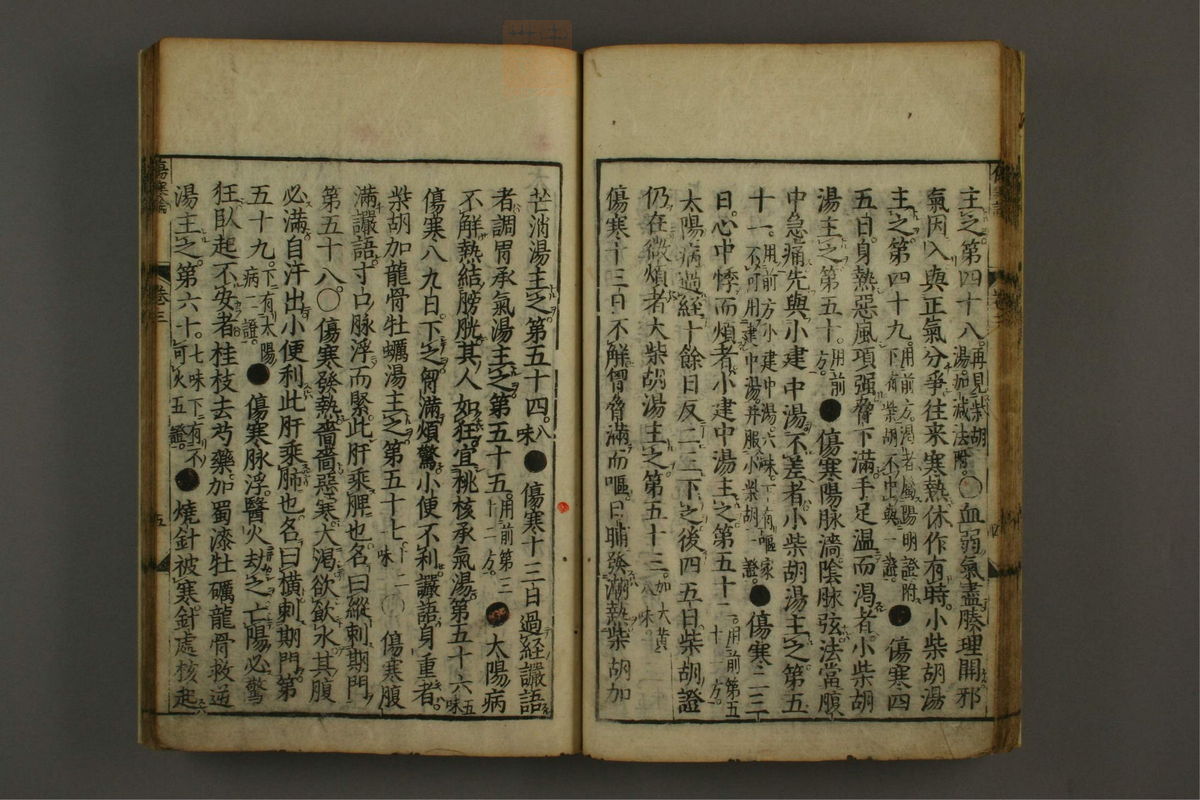 主之第四十八再見柴胡湯加減法附○血弱氣盡腠理開邪
氣因入與正氣分爭往来寒熱休作有時小柴胡湯
主之第四十九用前方渇者屬陽明證附下有柴胡不中與一證●傷寒四
五日身熱惡風項强脅下滿手足温而渇者小柴胡
湯主之第五十用前方●傷寒陽脉濇陰脉弦法當腹
中急痛先與小建中湯不差者小柴胡湯主之第五
十一用前方小建中湯六味下有嘔家不可用建中湯并服小柴胡一證●傷寒二三
日心中悸而煩者小建中湯主之第五十二用前第五十一方
太陽病過経十餘日反二三下之後四五日柴胡證
仍在微煩者大柴胡湯主之第五十三加大黄八味
傷寒十三日不解胷脅滿而嘔日晡發潮熱柴胡加
芒消湯主之第五十四八味●傷寒十三日過経讝語
者調胃承氣湯主之第五十五用前第三十二方●太陽病
不解熱結膀胱其人如狂宜桃核承氣湯第五十六五味
傷寒八九日下之胷滿煩驚小便不利讝語身重者
柴胡加龍骨牡蠣湯主之第五十七十二味○傷寒腹
滿讝語寸口脉浮而緊此肝乘脾也名曰縱刺期門
第五十八○傷寒發熱嗇嗇惡寒大渇欲飲水其腹
必滿自汗出小便利此肝乘肺也名曰横刺期門第
五十九下有太陽病一證●傷寒脉浮醫火劫之亡陽必驚
狂臥起不安者桂枝去芍藥加蜀漆牡礪龍骨救逆
湯主之第六十七味下有不可火五證●燒針被寒針處核起
傷寒論
卷三
五